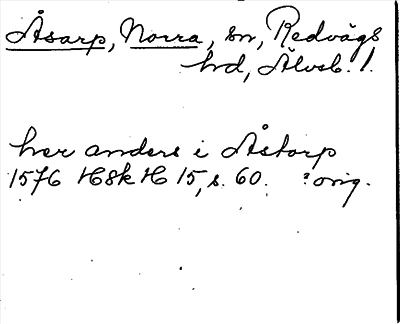 Åsarp, Norra, sn, Redvägs
hd, Älvsb. l.
her anders i Åstorp
1576 HSkH 15, s. 60. ? orig.